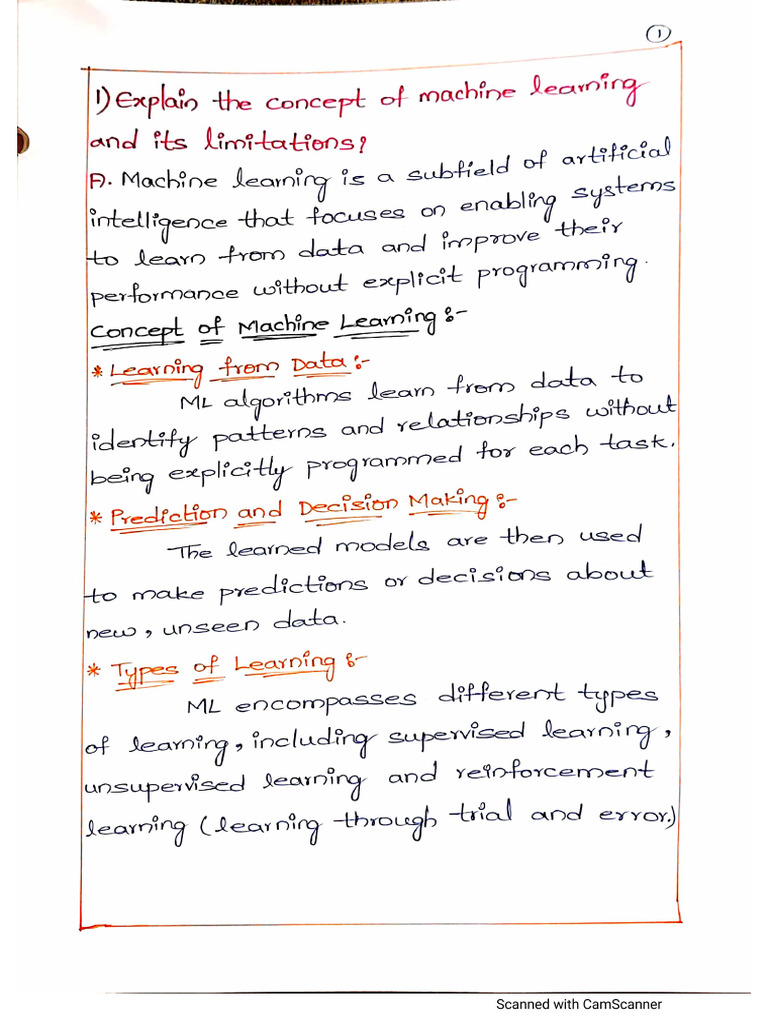 1
1) Explain the concept of machine learning
and its limitations?
A. Machine learning is a subfield of artificial
intelligence that focuses on enabling systems
to learn from data and improve their
performance without explicit programming.
Concept of Machine Learning :-
* Learning from Data :-
ML algorithms learn from data to
identify patterns and relationships without
being explicitly programmed for each task.
* Prediction and Decision Making :-
The learned models are then used
to make predictions or decisions about
new, unseen data.
* Types of Learning :-
ML encompasses different types
of learning, including supervised learning,
unsupervised learning and reinforcement
learning (learning through trial and error.)
Scanned with CamScanner